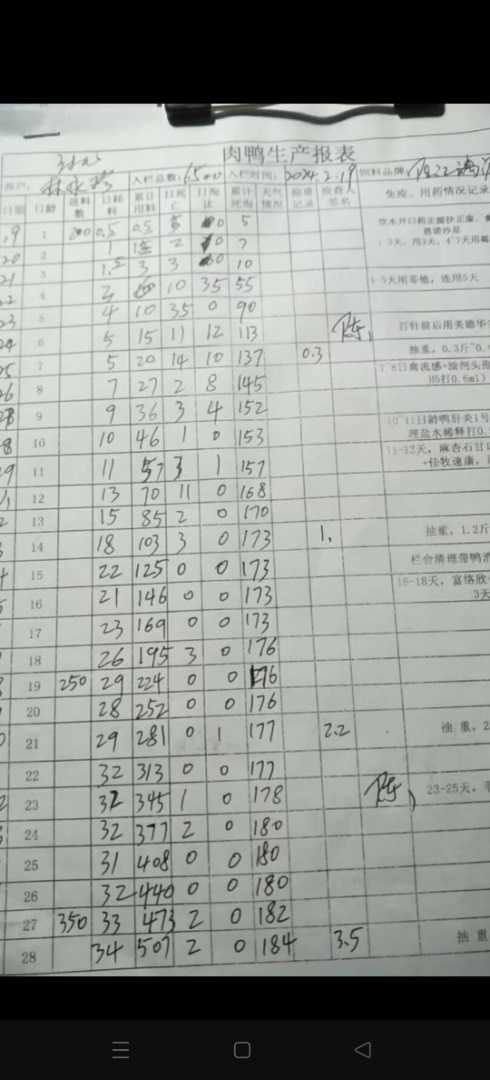 肉鸭生产报表
入栏总数: 6500 入栏时间: 2024.2.19 饲料品牌
日龄 送料数 日耗料 累计用料 日死亡 日淘汰 累计死淘 天气情况 抽重记录 检查人签名 免疫、用药情况记录
1 200 0.5 0.5 5 0 5
2 1 2 0 7
1-3天, 用3天, 4-7天用
3 1.5 3 3 0 10
4 10 35 55
1-5天用 连用5天
5 4 10 35 0 90
6 5 15 11 12 113 陈
打针前后用美德华
7 5 20 14 10 137 0.3
抽重, 0.3斤
8 7 27 2 8 145
7-8日禽流感+
打0.6ml)
9 9 36 3 4 152
10 10 46 1 0 153
10-11日龄鸭肝炎1号
理盐水稀释打0.
11 11 57 3 1 157
11-12天, 麻杏石甘
12 13 70 11 0 168
13 15 85 2 0 170
14 18 103 3 0 173 1.
抽重, 1.2斤
15 22 125 0 0 173
栏舍清理带鸭
16 21 146 0 0 173
16-18天, 富络欣
3天
17 23 169 0 0 173
18 26 195 3 0 176
19 250 29 224 0 0 176
20 28 252 0 0 176
21 29 281 0 1 177 2.2
抽重, 2
22 32 313 0 0 177
23 32 345 1 0 178 陈
23-25天,
24 32 377 2 0 180
25 31 408 0 0 180
26 32 440 0 0 180
27 350 33 473 2 0 182
28 34 507 2 0 184 3.5
抽重